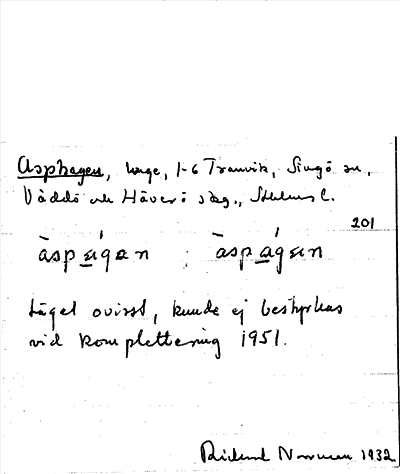 Asphagen, hage, 1-6 Tranvik, Singö sn,
Väddö och Häverö skg., Sthlms l.
201
àspa̲gan : àspa̲gan
Läget ovisst, kunde ej bestyrkas
vid komplettering 1951.
Rickard Norrman 1932